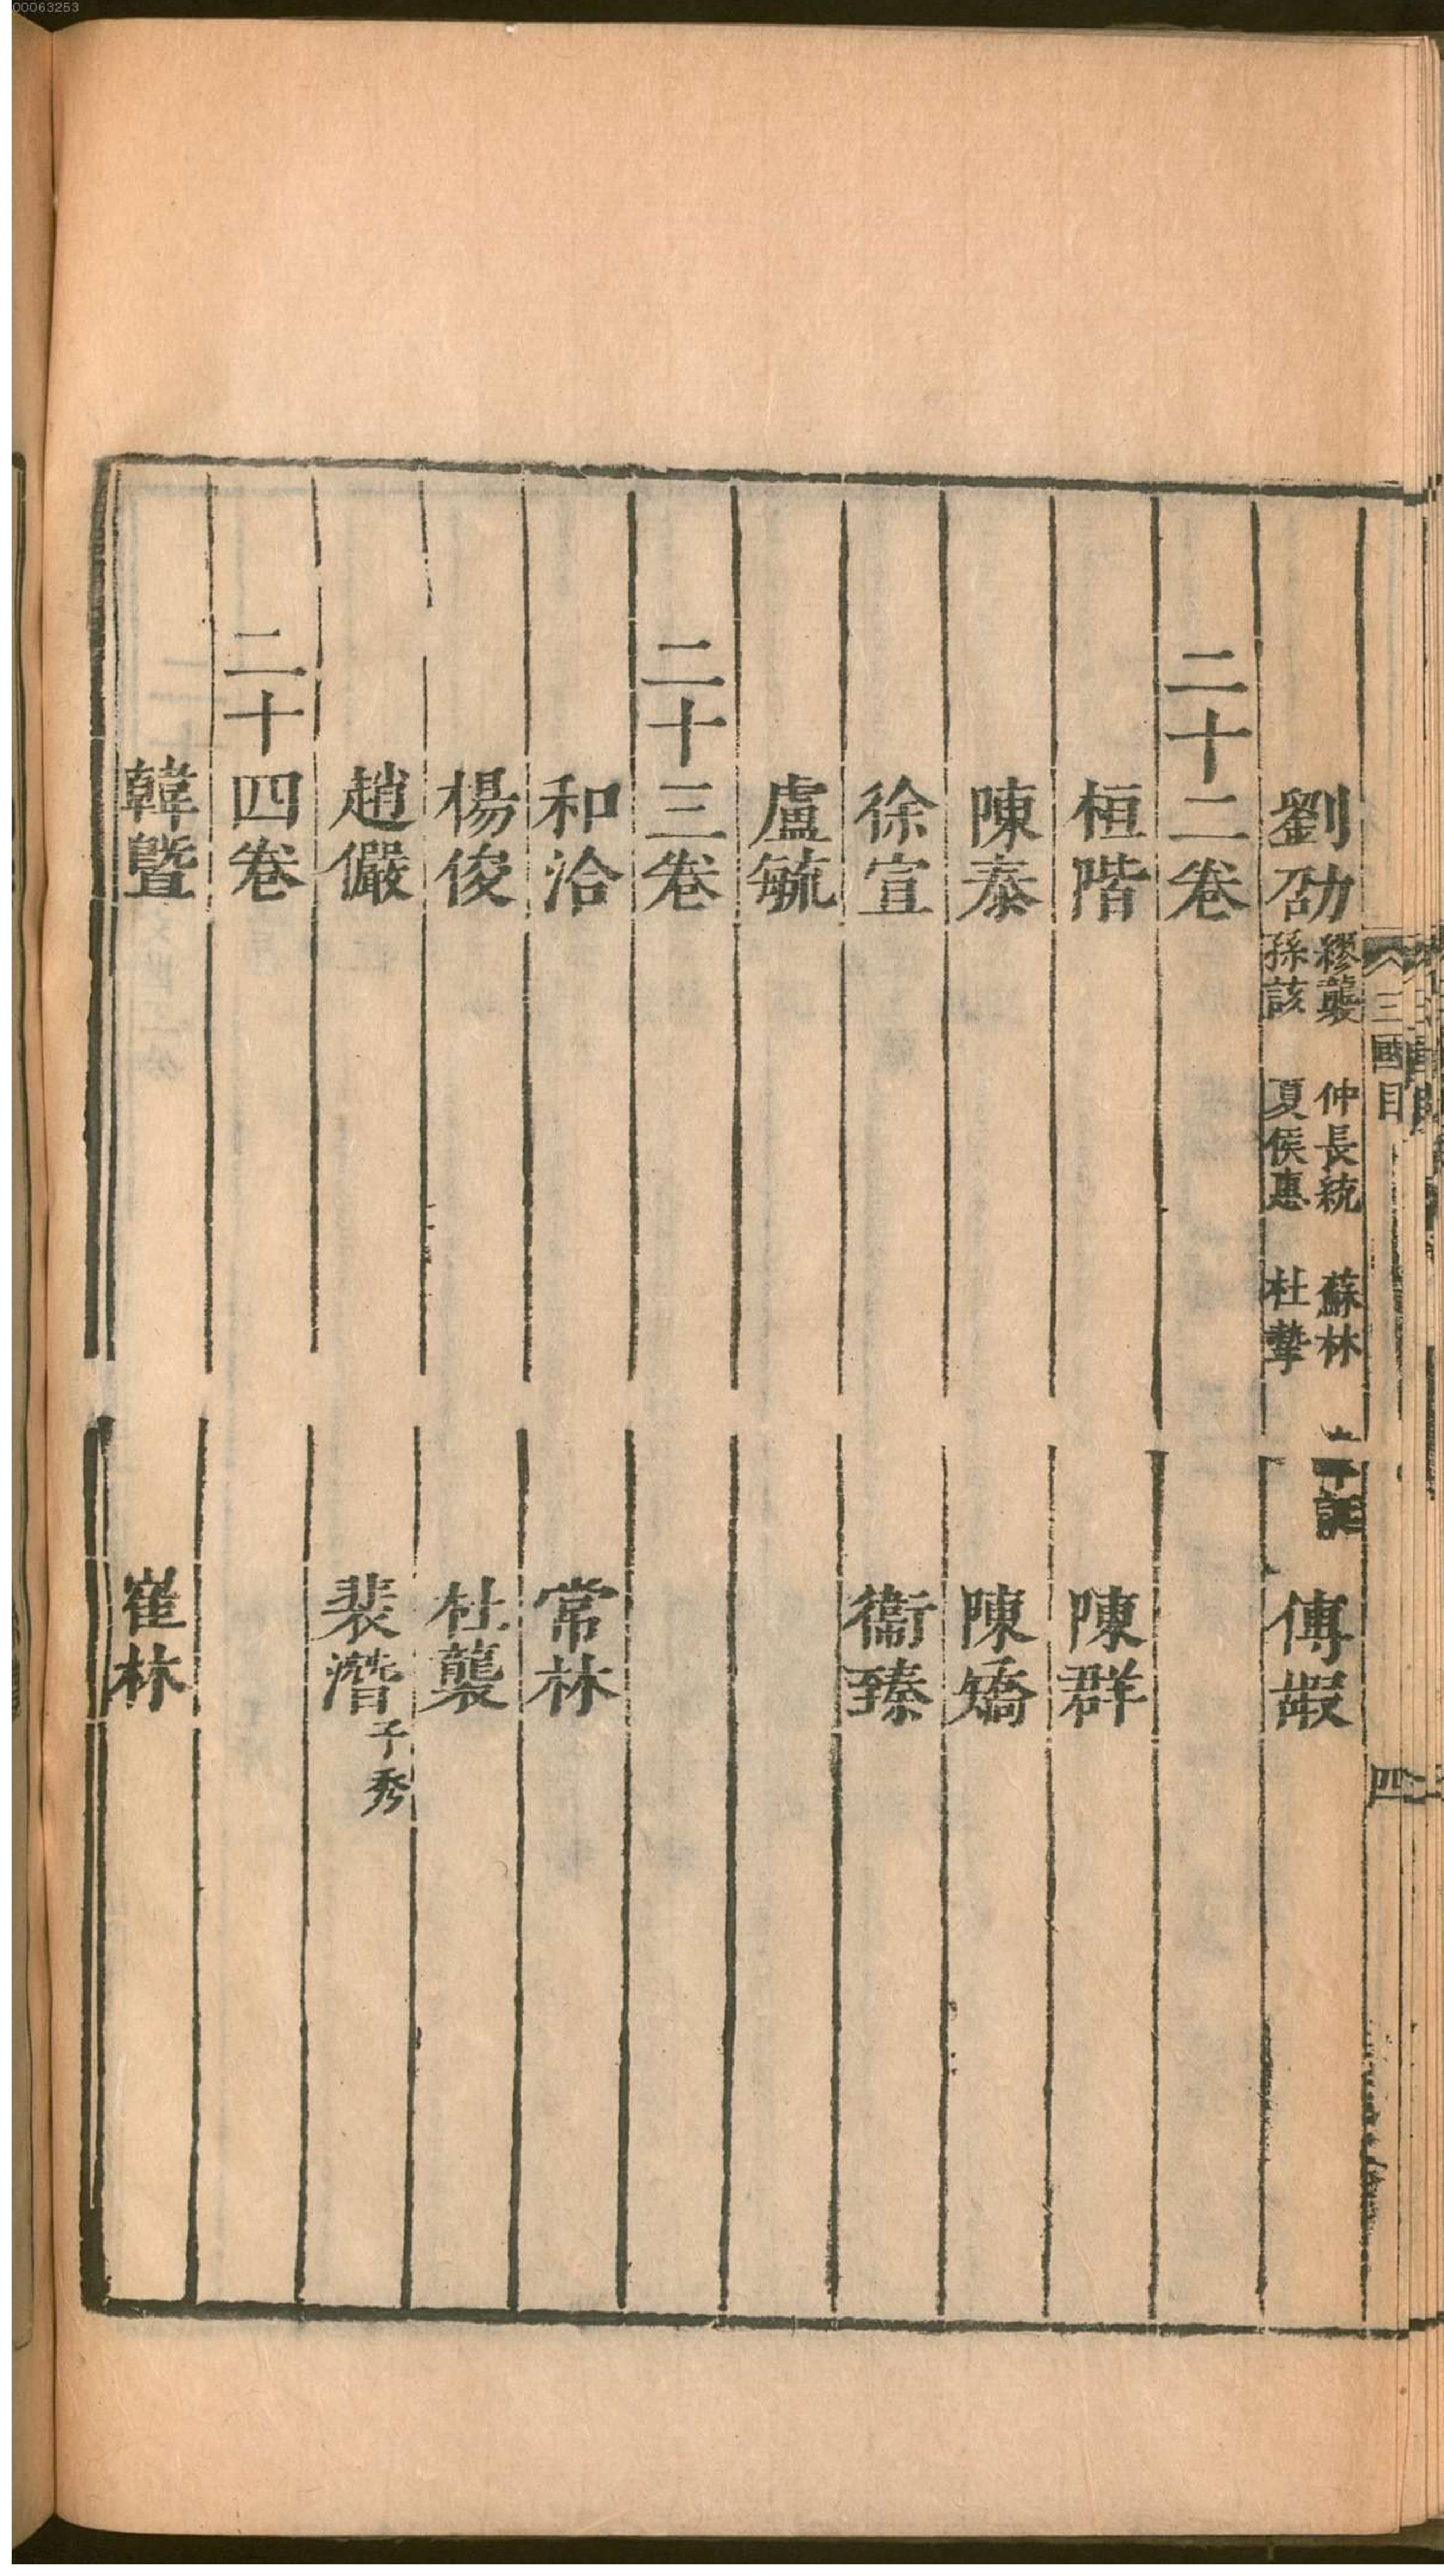 00063253
三國目
四
劉劭 繆襲 仲長統 蘇林
孫該 夏侯惠 杜摯
傅嘏
二十二卷
桓階 陳群
陳泰 陳矯
徐宣 衞臻
盧毓
二十三卷
和洽 常林
楊俊 杜襲
趙儼 裴潛 子秀
二十四卷
韓暨 崔林